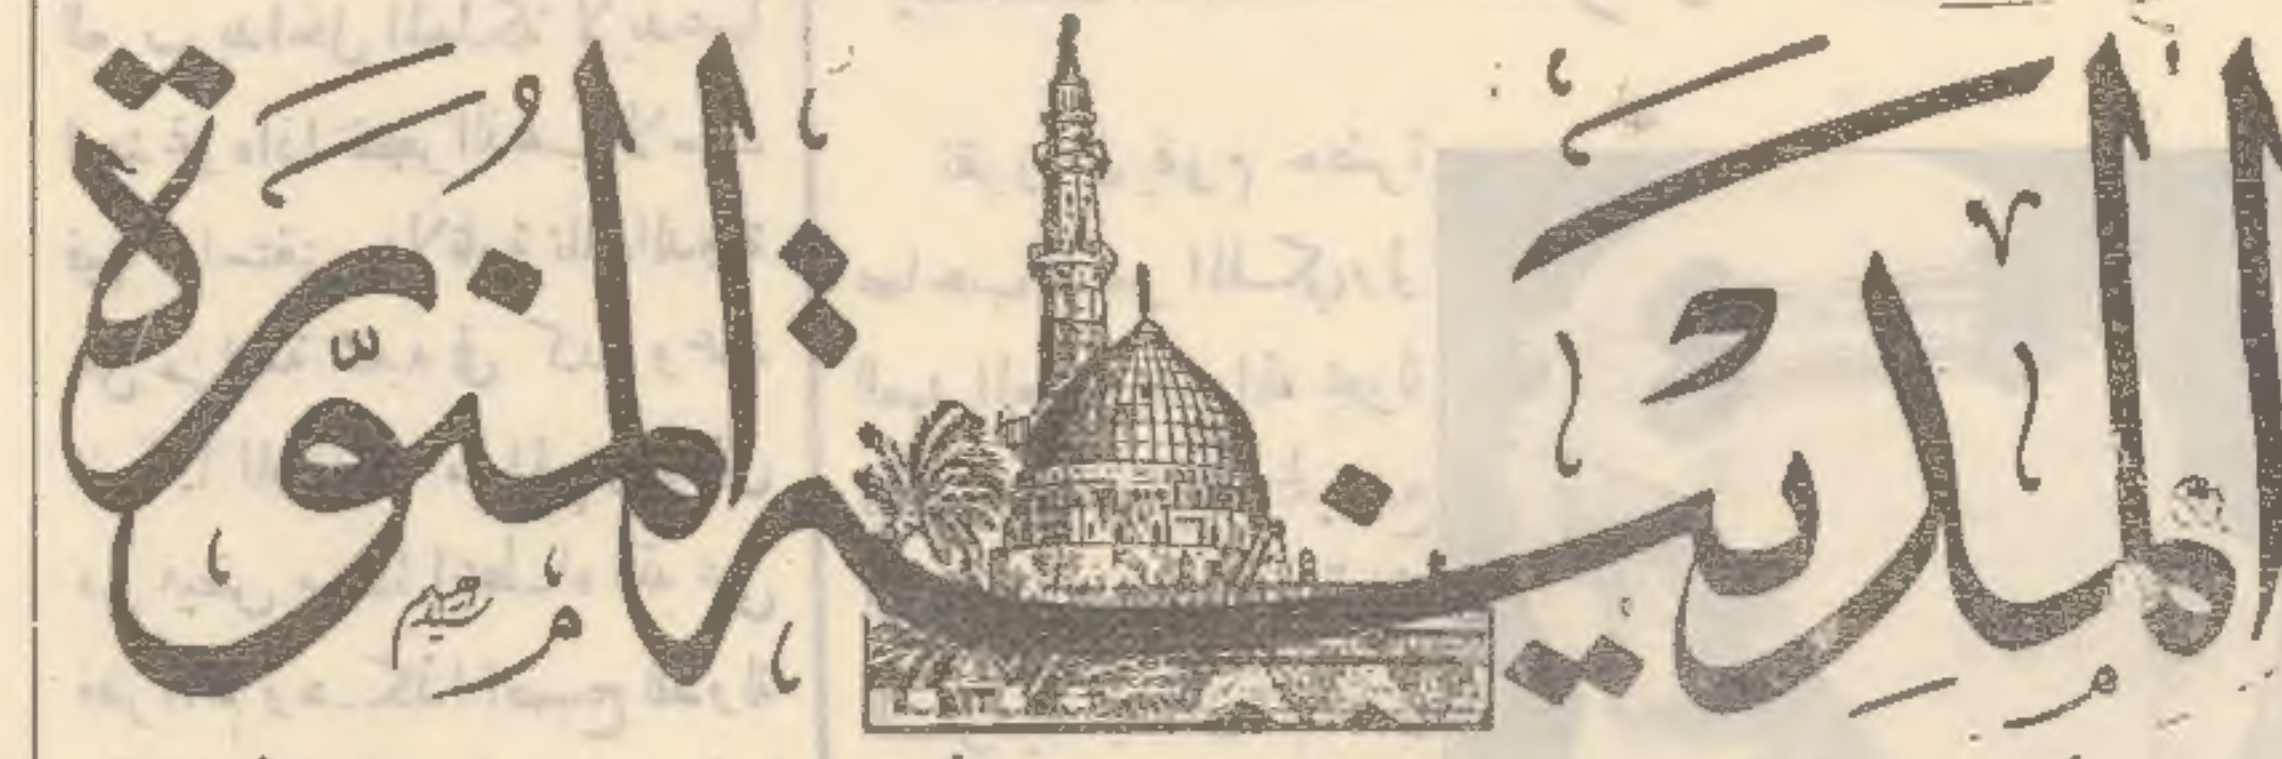 المدينة المنوّرة